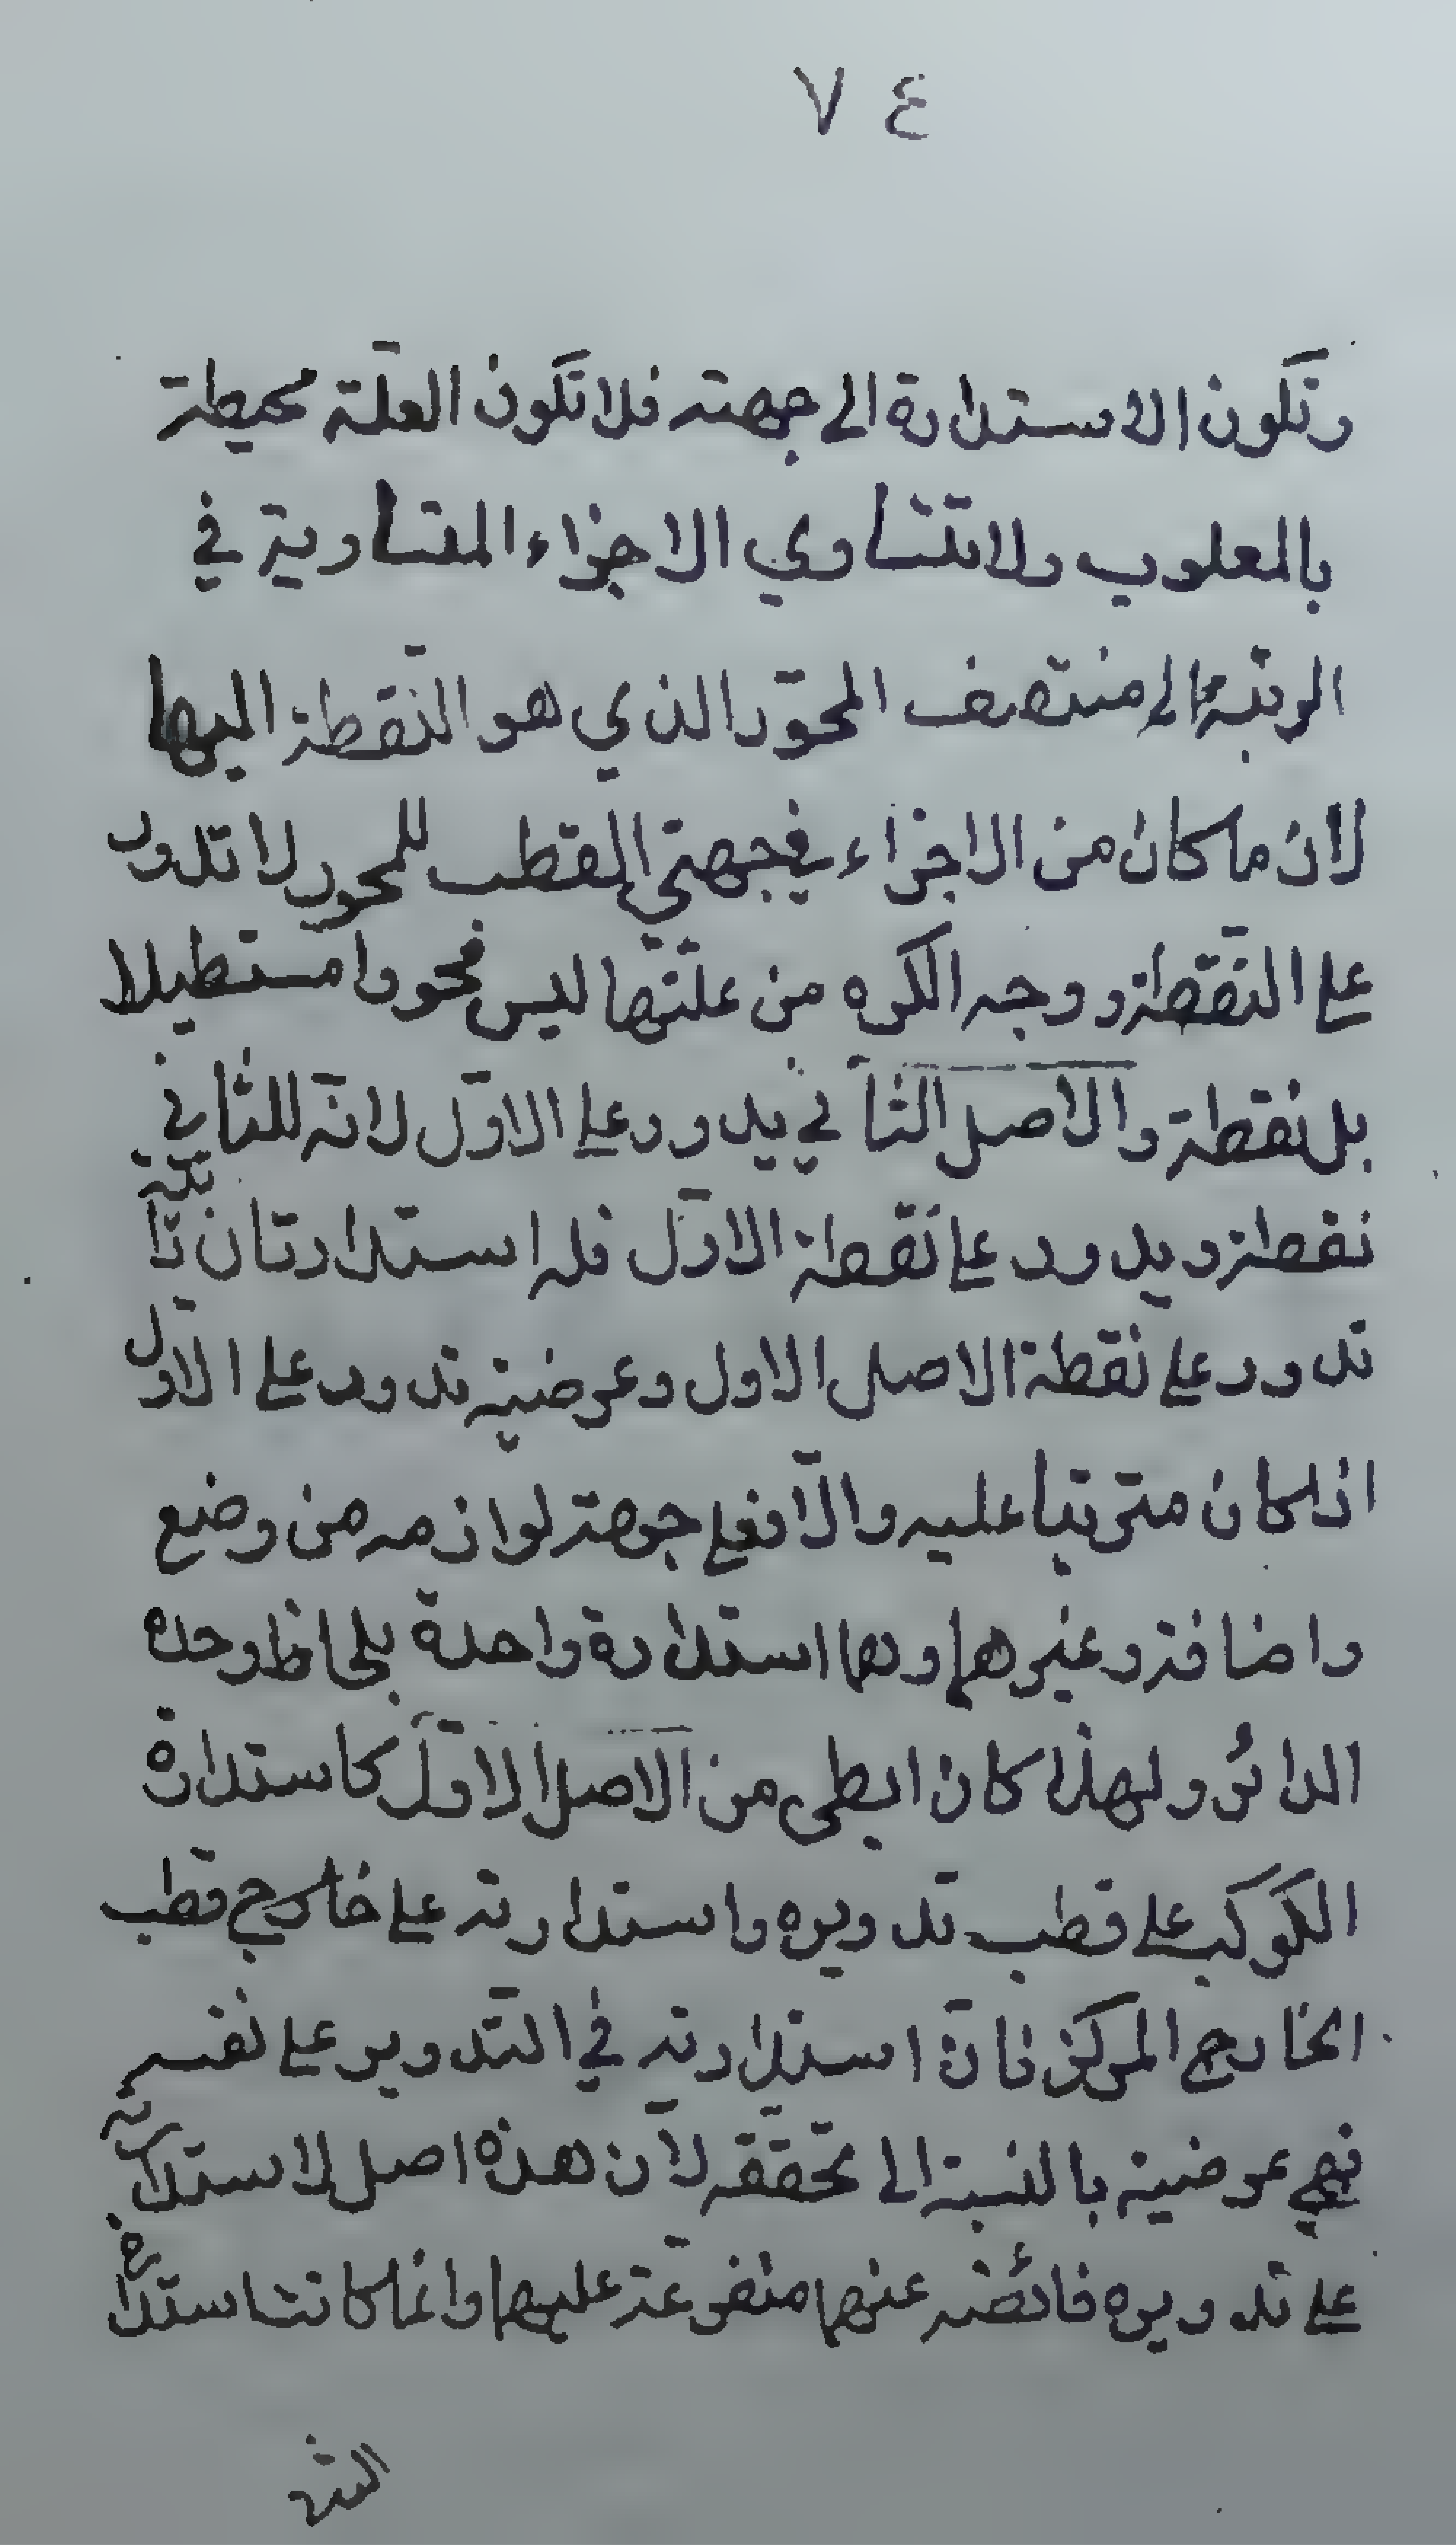 ٧٤
وتكون الاستدارة الى جهته فلا تكون العلّة محيطة
بالمعلوب ولا تتساوي الاجزاء المتساوية في
الرتبة الى منتصف المحوّر الذي هو النّقطة اليها
لأن ما كان من الاجزاء في جهتي القطب للمحور لا تدور
على النّقطة ووجه الكره من علّتها ليس محورا مستطيلا
بل نقطة والاصل الثاني يدور على الاوّل لانّه للثاني
نقطة ويدور على نقطة الاوّل فله استدارتان ذاتيّة
تدور على نقطة الاصل الاول وعرضية تدور على الاوّل
اذا كان مترتبا عليه والّا فعلى جهة لوازمه من وضع
واضافة وغيرهما وهما استدارة واحدة بلحاظ وحدة
الدائر ولهذا كان ابطى من الاصل الاوّل كاستدارة
الكوكب على قطب تدويره واستدارته على خارج قطب
الخارج المركز فانّ استدارته في التّدوير على نفسه
فهي عرضية بالنسبة الى تحقّقه لأن هذه اصل لاستدارته
على تدويره فائضه عنها متفرّعة عليها وانما كانتا استدارة